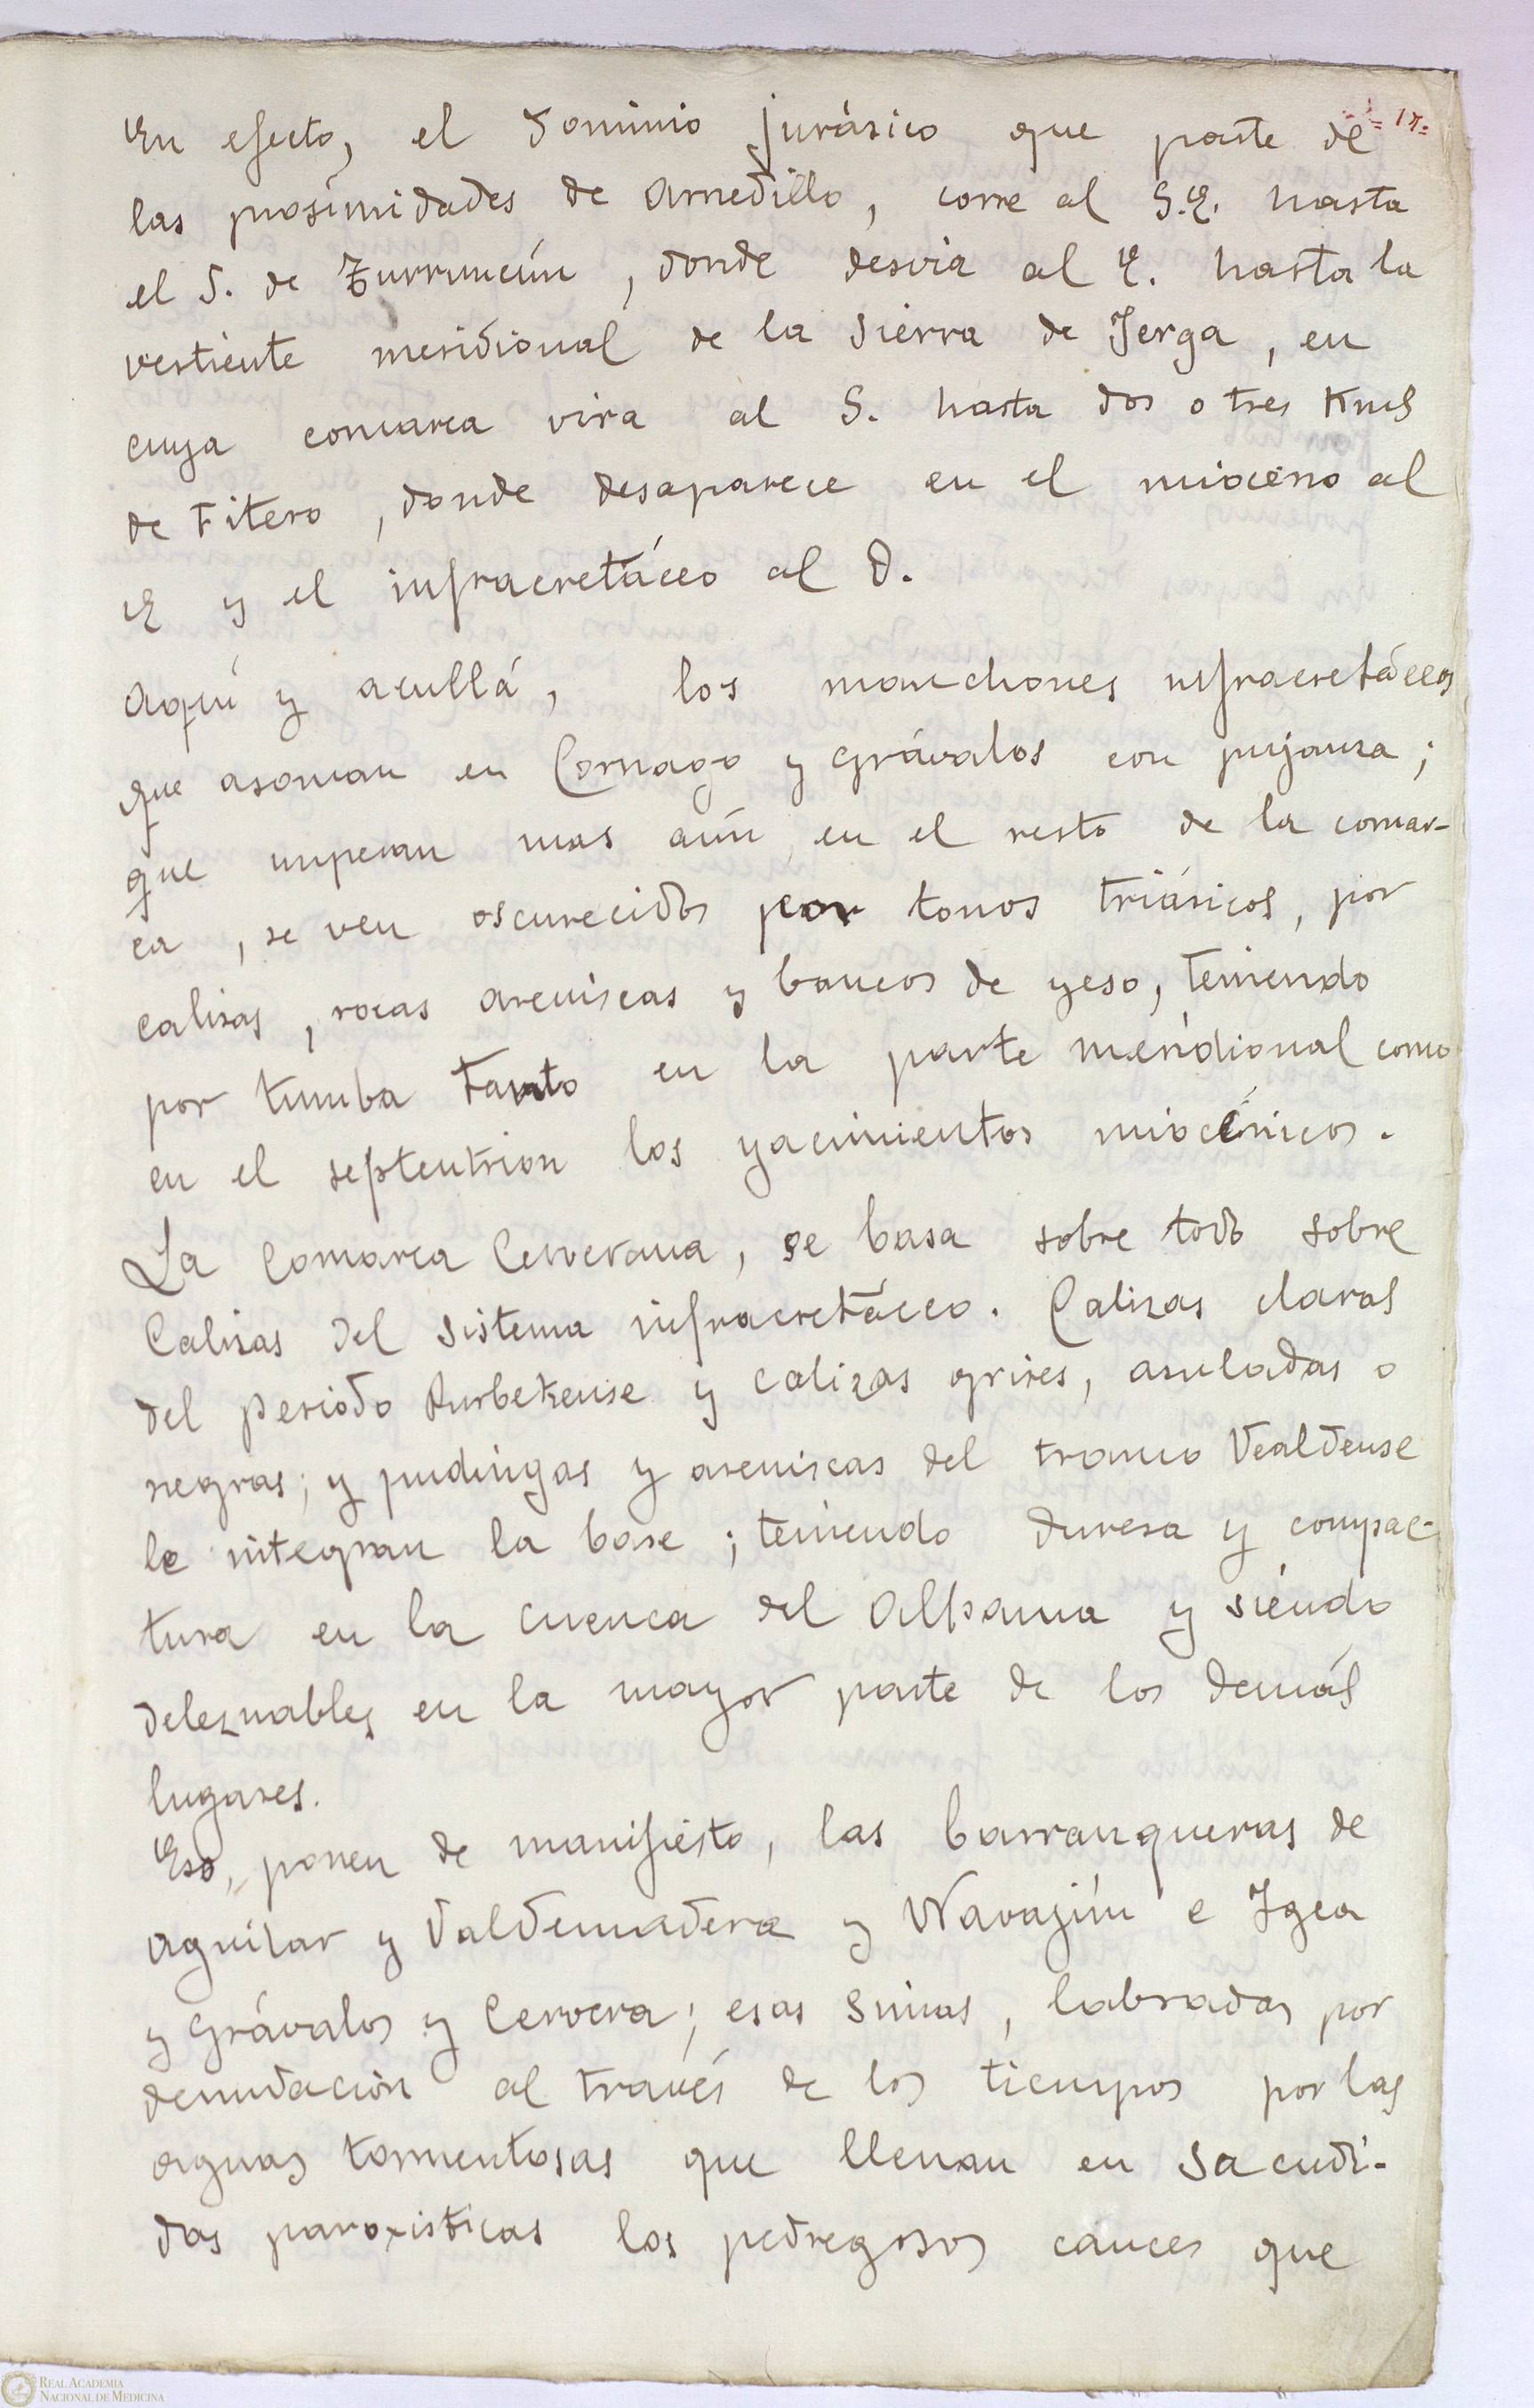 = 17 =
En efecto, el dominio jurásico que parte de
las prosimidades de Arnedillo, corre al S.E. hasta
el S. de Turruncún, donde desvia al E. hasta la
vertiente meridional de la Sierra de Yerga, en
cuya comarca vira al S. hasta dos o tres Kms
de Fitero, donde desaparece en el mioceno al
E y el infracretáceo al O.
Aquí y acullá, los manchones infracretáceos
que asoman en Cornago y Grávalos con pujanza;
que imperan mas aún en el resto de la comar-
ca, se ven oscurecidos por tonos triásicos, por
calizas, rocas areniscas y bancos de yeso, teniendo
por tumba tanto en la parte meridional como
en el septentrion los yacimientos miocénicos.
La Comarca Cerverana, se basa sobre todo sobre
Calizas del sistema infracretáceo. Calizas claras
del periodo Purbekense y calizas grises, azuladas o
negras; y pudingas y areniscas del tramo Vealdense
le integran la base; teniendo dureza y compac-
tura en la cuenca del Alhama y siendo
deleznables en la mayor parte de los demás
lugares.
Eso, ponen de manifiesto, las barranqueras de
Aguilar y Valdemadera y Navajún e Igea
y Grávalos y Cervera; esas simas, labradas por
denudación al través de los tiempos por las
aguas tormentosas que llenan en sacudi-
das paroxisticas los pedregosos cauces que
REAL ACADEMIA
NACIONAL DE MEDICINA